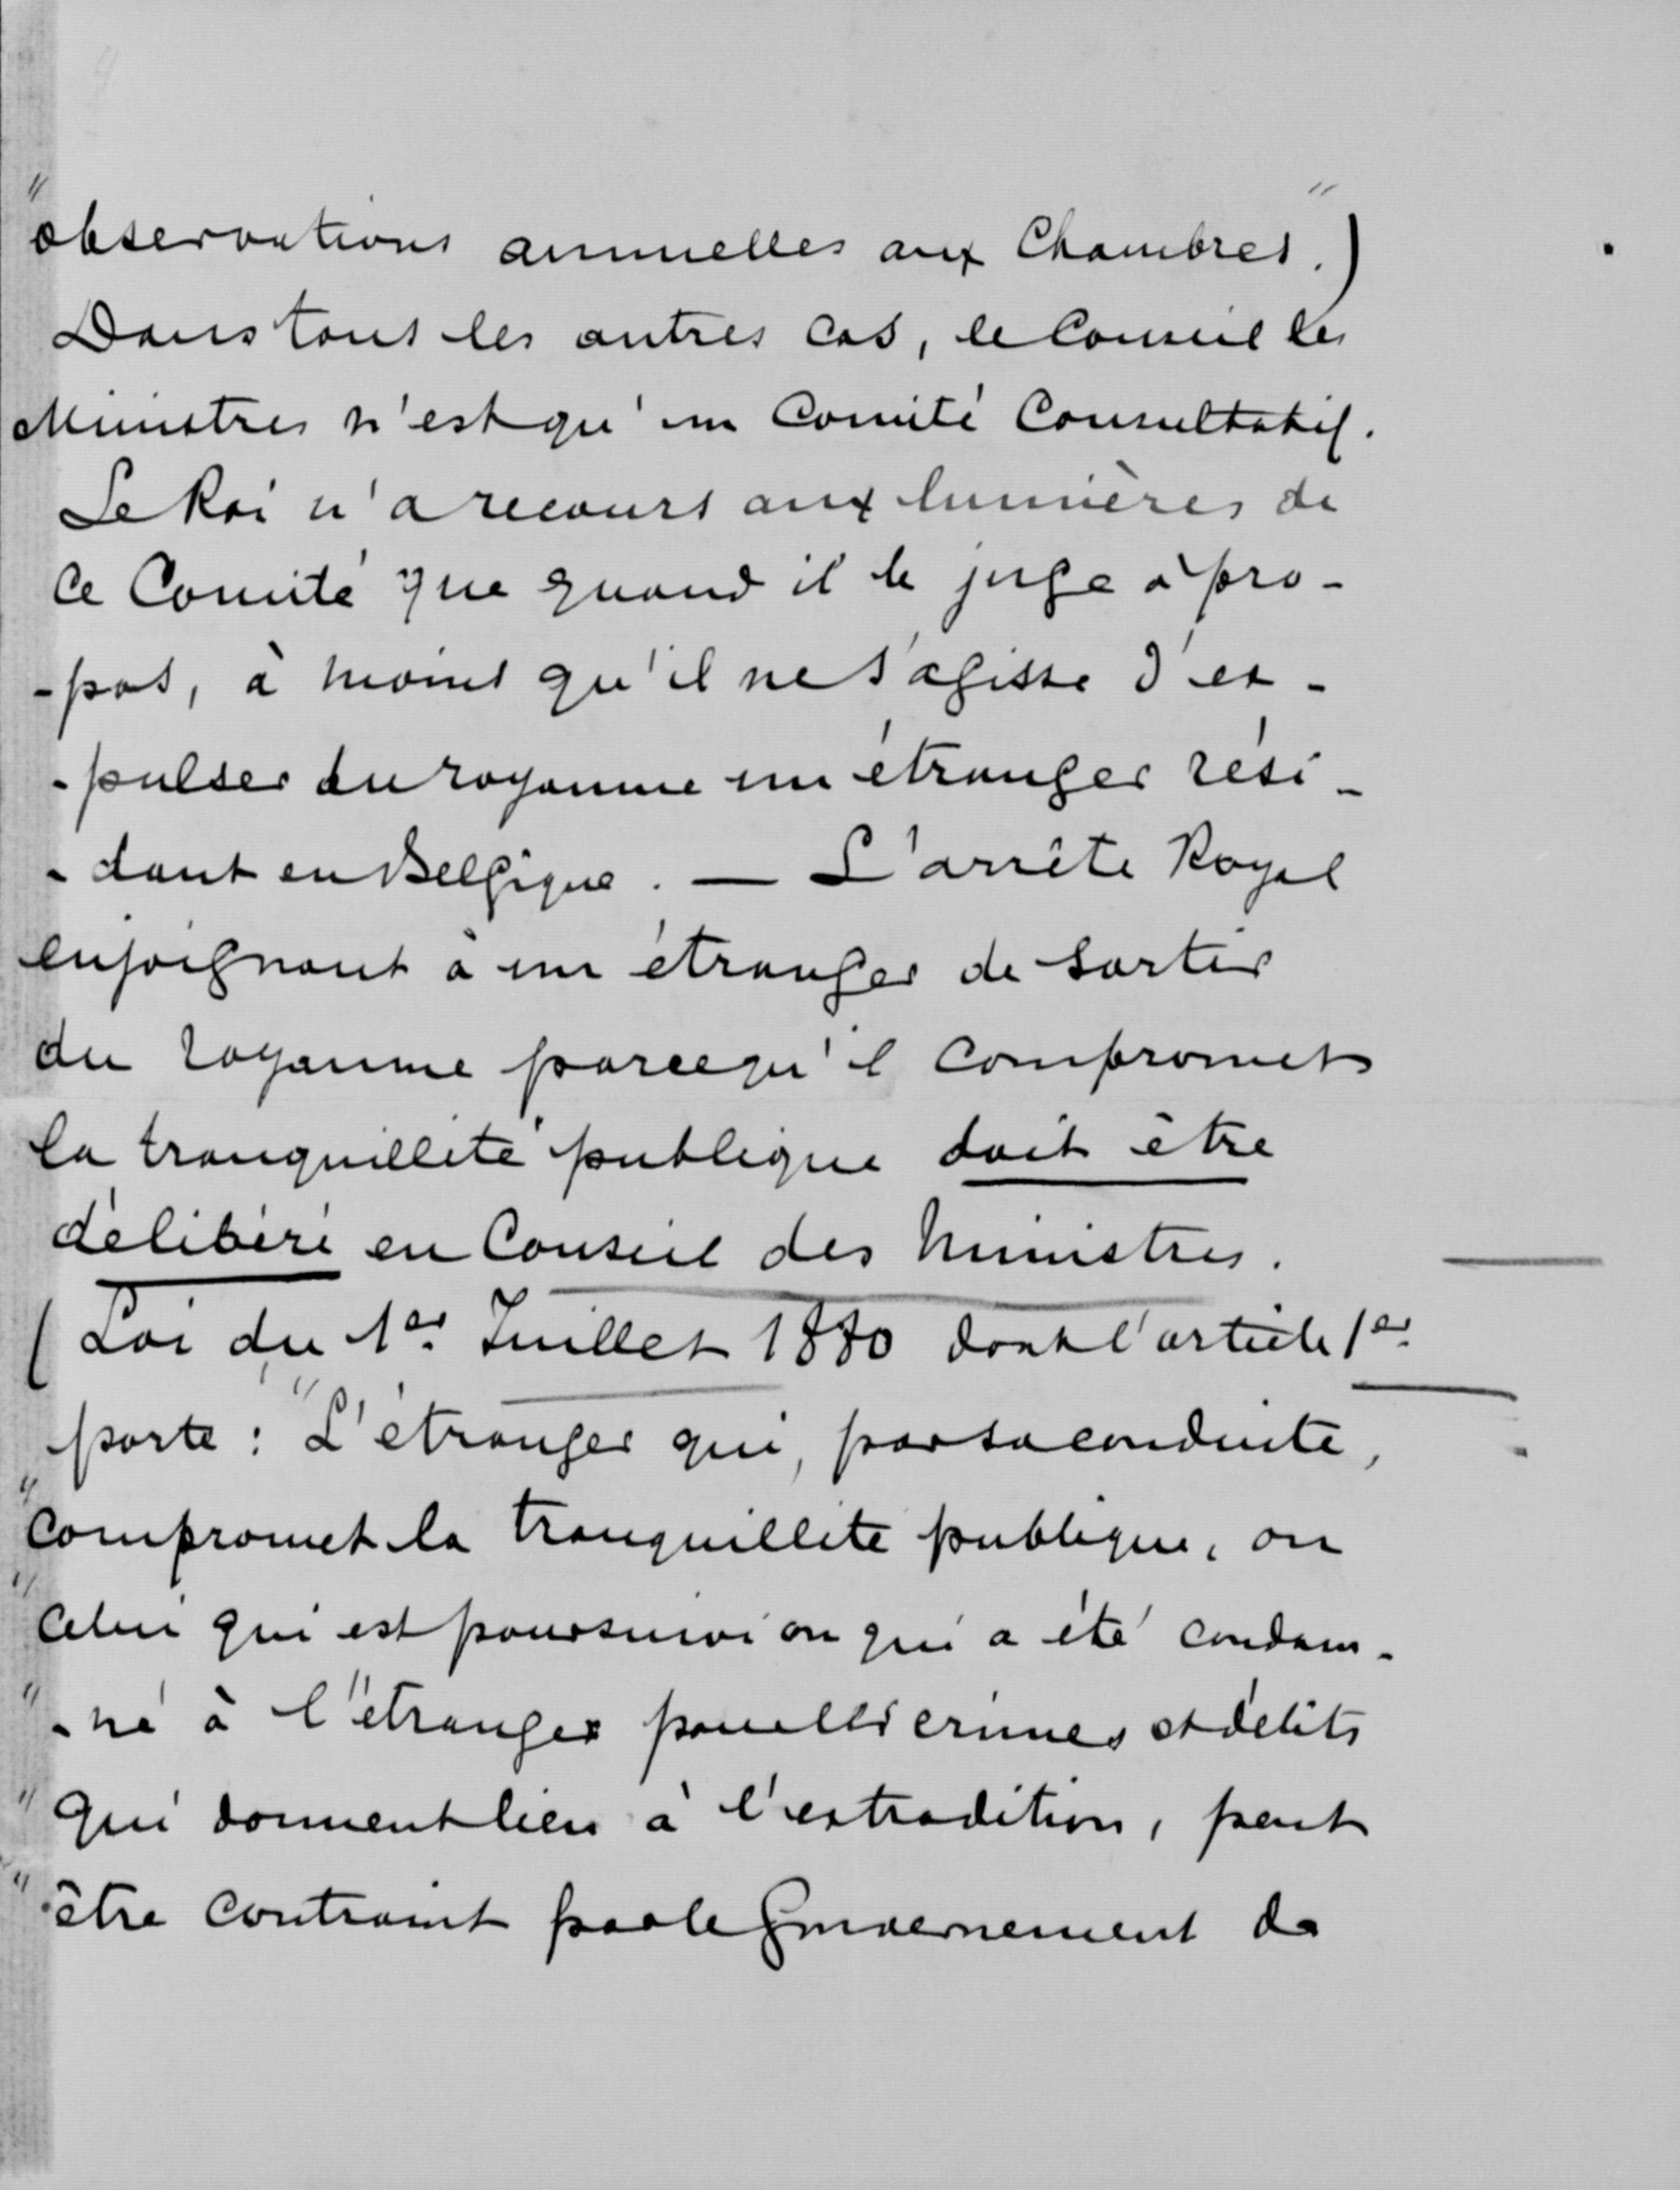 "observations annuelles aux Chambres".)
Dans tous les autres cas, le Conseil des
Ministres n'est qu'un Comité Consultatif.
Le Roi n'a recours aux lumières de
ce Comité que quand il le juge à pro-
-pos, à moins qu'il ne s'agisse d'ex-
-pulser du royaume un étranger rési-
-dant en Belgique. — L'arrêté Royal
enjoignant à un étranger de sortir
du royaume parcequ'il compromet
la tranquillité publique doit être
délibéré en Conseil des Ministres.
(Loi du 1er Juillet 1880 dont l'article 1er
porte: "L'étranger qui, par sa conduite,
"compromet la tranquillité publique, ou
"celui qui est poursuivi ou qui a été condam-
"-né à l'étranger pour les crimes et délits
"qui donnent lieu à l'extradition, peut
"être contraint par le Gouvernement de